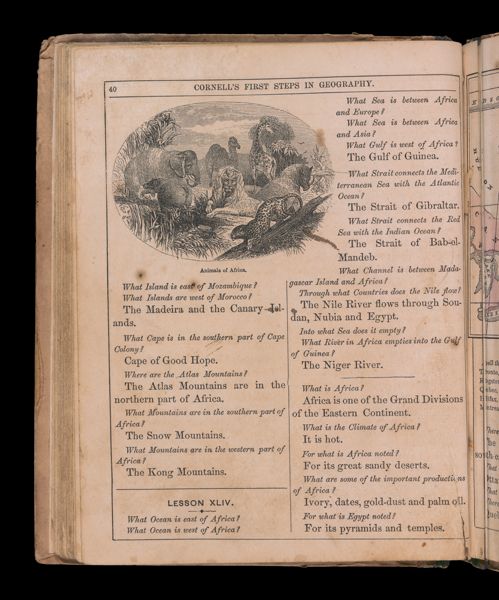 40
CORNELL'S FIRST STEPS IN GEOGRAPHY.
Animals of Africa.
What Island is east of Mozambique?
What Islands are west of Morocco?
The Madeira and the Canary Isl-
ands.
What Cape is in the southern part of Cape
Colony?
Cape of Good Hope.
Where are the Atlas Mountains?
The Atlas Mountains are in the
northern part of Africa.
What Mountains are in the southern part of
Africa?
The Snow Mountains.
What Mountains are in the western part of
Africa?
The Kong Mountains.
LESSON XLIV.
What Ocean is east of Africa?
What Ocean is west of Africa?
What Sea is between Africa
and Europe?
What Sea is between Africa
and Asia?
What Gulf is west of Africa?
The Gulf of Guinea.
What Strait connects the Medi-
terranean Sea with the Atlantic
Ocean?
The Strait of Gibraltar.
What Strait connects the Red
Sea with the Indian Ocean?
The Strait of Bab-el-
Mandeb.
What Channel is between Mada-
gascar Island and Africa?
Through what Countries does the Nile flow?
The Nile River flows through Sou-
dan, Nubia and Egypt.
Into what Sea does it empty?
What River in Africa empties into the Gulf
of Guinea?
The Niger River.
What is Africa?
Africa is one of the Grand Divisions
of the Eastern Continent.
What is the Climate of Africa?
It is hot.
For what is Africa noted?
For its great sandy deserts.
What are some of the important productions
of Africa?
Ivory, dates, gold-dust and palm oil.
For what is Egypt noted?
For its pyramids and temples.